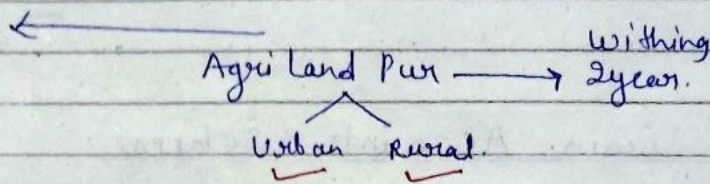 Agri Land Pur → Withing
2year.
Urban Rural.